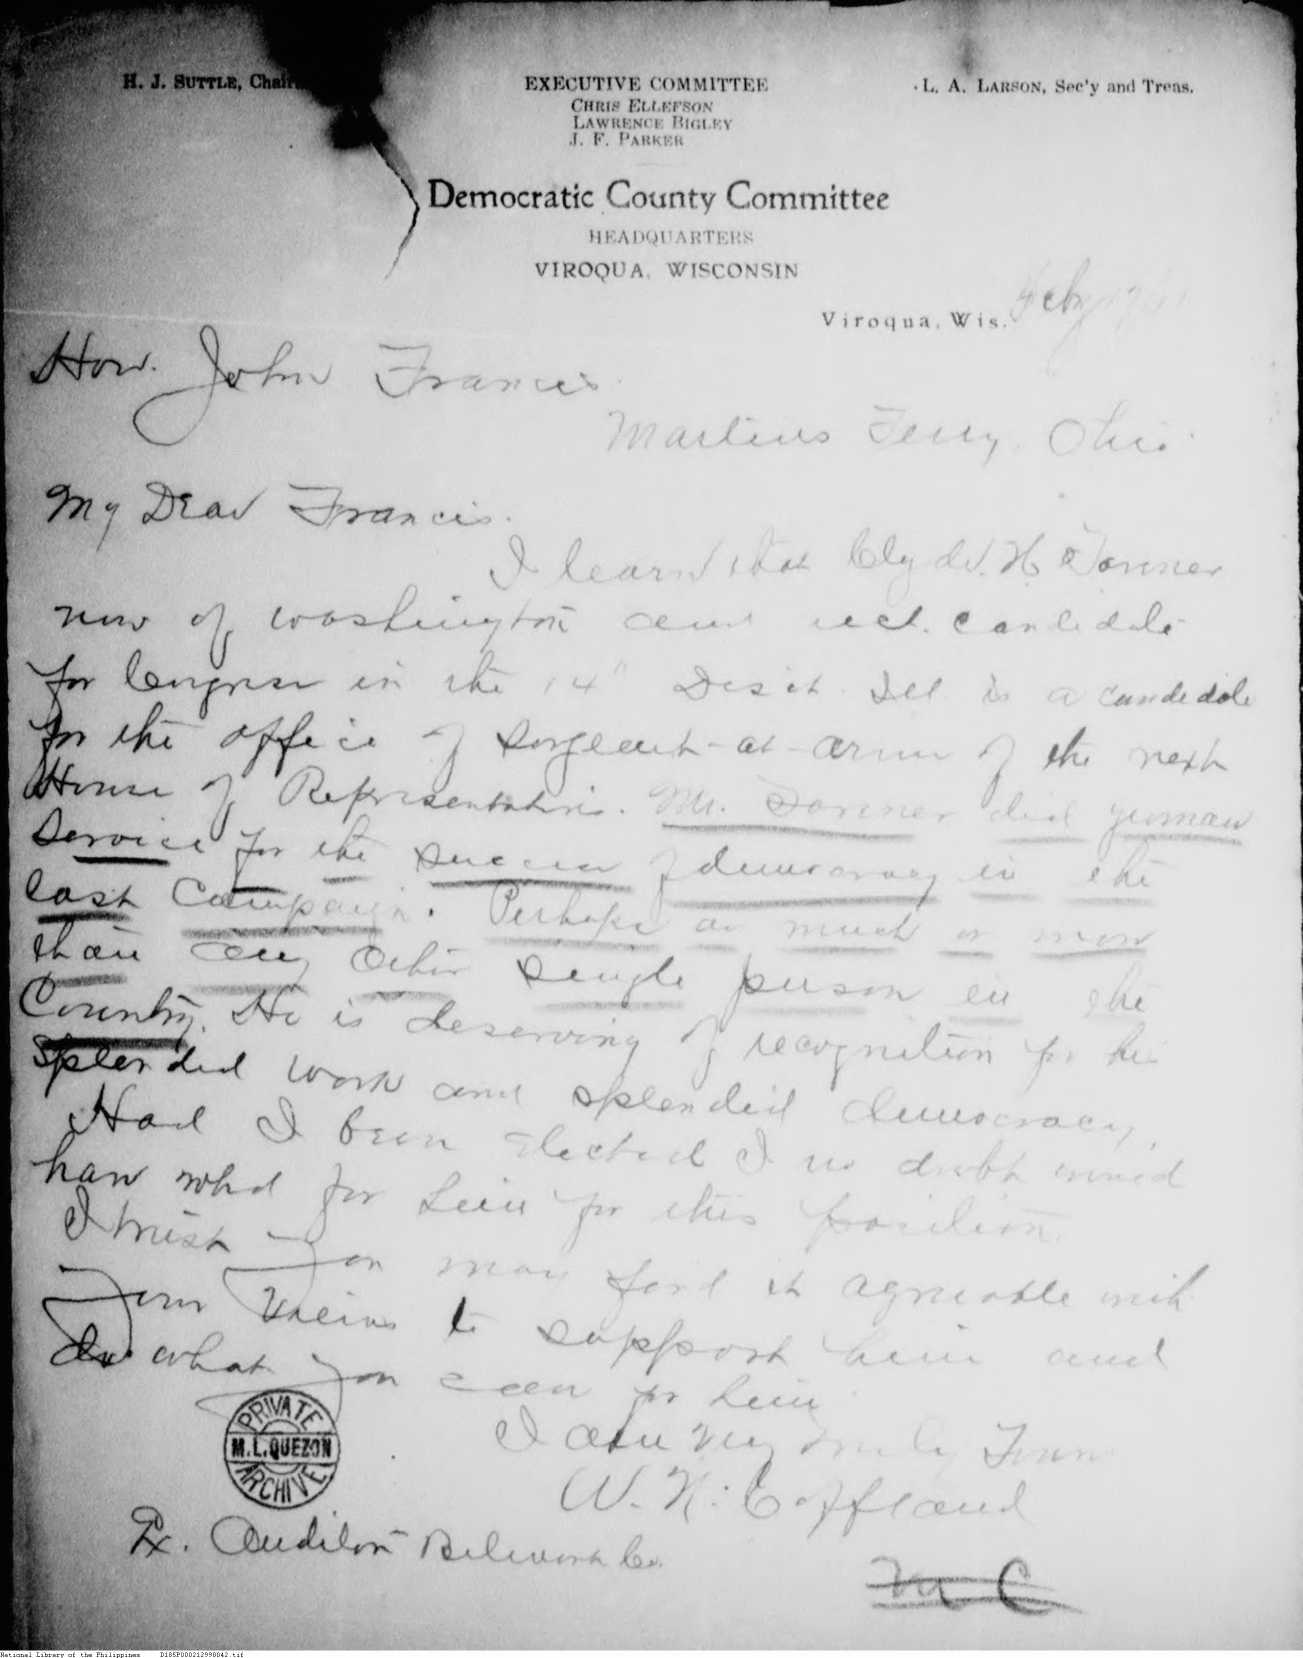 H. J. SUTTLE, Chair
EXECUTIVE COMMITTEE
CHRIS ELLEFSON
LAWRENCE BIGLEY
J. F. PARKER
L. A. LARSON, Sec'y and Treas.
Democratic County Committee
HEADQUARTERS
VIROQUA, WISCONSIN
Viroqua, Wis.
Hon. John Francis
Martins Ferry, Ohio.
My Dear Francis.
I learn that Clyde H. Tavenner
now of Washington and candidate
for Congress in the 14" Dist. Ill. is a candidate
for the office of Sergeant-at-arms of the next
House of Representatives. Mr. Tavenner did yeoman
service for the success of democracy in the
last Campaign. Perhaps as much or more
than any other single person in the
Country. He is deserving of recognition for his
splendid work and splendid democracy.
Had I been elected I no doubt would
have voted for him for this position.
I trust you may find it agreeable with
your views to support him and
do what you can for him
I am Very Truly Yours
W. N. Coffland
Ex. Auditor Belmont Co.
PRIVATE
M. L. QUEZON
ARCHIVE
National Library of the Philippines D185P000212998042.tif